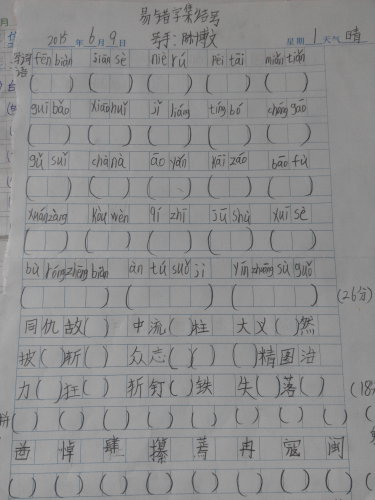 易错字集结号
2015 年 6 月 9 日 号手:陈博文 星期 1 天气 晴
fēn biàn xiān sè niè rú pēi tāi miǎn tiǎn
( ) ( ) ( ) ( ) ( )
guī bǎo jǐ liáng tíng bó cháng gāo
( ) ( ) ( ) ( ) ( )
gǔ suǐ chà nà áo yán kāi záo bāo fù
( ) ( ) ( ) ( ) ( )
xuán zàng kòu wèn qí zhī jū shù xuī sè
( ) ( ) ( ) ( ) ( )
bù róng zhēng biàn àn tú suǒ jì yín zhuāng sù guǒ
( ) ( ) ( ) (26分)
同仇故( ) 中流( )柱 大义( )然
披( )斩( ) 众志( )( ) ( )精图治
力( )狂( ) 斩钉( )铁 失( )落( ) (18
( ) ( ) ( ) ( ) ( ) ( ) ( ) ( )
悼 肆 攥 冉 寇 闽
( ) ( ) ( ) ( ) ( ) ( ) ( ) ( )